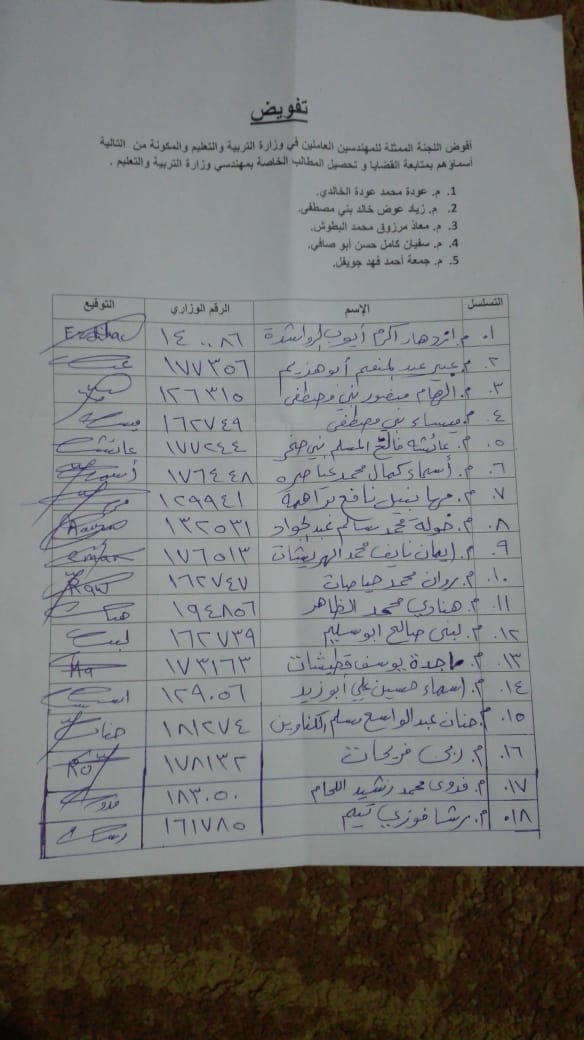 تفويض
أفوض اللجنة الممثلة للمهندسين العاملين في وزارة التربية والتعليم والمكونة من التالية
أسماؤهم بمتابعة القضايا و تحصيل المطالب الخاصة بمهندسي وزارة التربية والتعليم .
1. م. عودة محمد عودة الخالدي.
2. م. زياد عوض خالد بني مصطفى.
3. م. معاذ مرزوق محمد البطوش.
4. م. سفيان كامل حسن أبو صافي.
5. م. جمعة أحمد فهد جويفل.
التسلسل الإسم الرقم الوزاري التوقيع
٠١ م. ازدهار اكرم أيوب الرواشدة ١٤٠٠٨٦
٠٢ م. عبير عبد المنعم أبو هزيم ١٧٧٣٥٦ عبير
٠٣ م. الهام منصور بني مصطفى ١٢٦٣١٥
٠٤ م. ميساء بني مصطفى ١٦٢٧٤٩
٠٥ م. عائشه فالح المسلم بني صخر ١٧٧٢٤٤ عائشة
٠٦ م. أسماء كمال محمد عياصره ١٧٦٤٤٨
٠٧ م. مها نبيل نافع براهمة ١٢٩٩٤١
٠٨ م. خولة محمد سالم عبد الجواد ١٣٢٥٣١
٠٩ م. ايمان نايف محمد ١٧٦٥١٣
٠١٠ م. روان محمد حياصات ١٦٢٧٤٧
٠١١ م. هنادي محمد الظاهر ١٩٤٨٥٦
٠١٢ م. لبنى صالح ابو سليم ١٦٢٧٣٩ لبنى
٠١٣ م. ماجدة يوسف قطيشات ١٧٣١٦٣
٠١٤ م. اسماء حسين علي أبو زيد ١٢٩٠٥٦
٠١٥ م. حنان عبد الواسع مسلم الكفاوين ١٨١٢٧٤ حنان
٠١٦ م. ربى فريحات ١٧٨١٣٢
٠١٧ م. فدوى محمد رشيد اللحام ١٨٣٠٥٠ فدوى
٠١٨ م. رشا فوزي تيم ١٦١٧٨٥